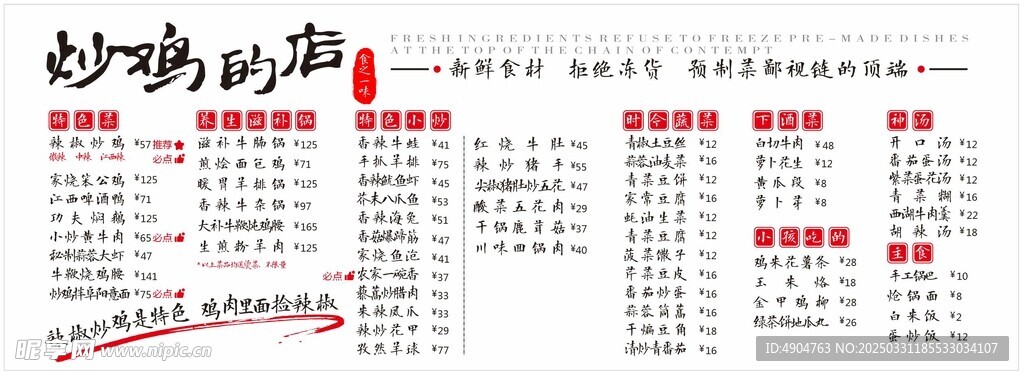 炒鸡的店
食之一味
FRESH INGREDIENTS REFUSE TO FREEZE PRE-MADE DISHES
AT THE TOP OF THE CHAIN OF CONTEMPT
新鲜食材 拒绝冻货 预制菜鄙视链的顶端
特色菜
辣椒炒鸡 ¥57 推荐
微辣 中辣 江西辣 必点
家烧笨公鸡 ¥125
江西啤酒鸭 ¥71
功夫焖鹅 ¥125
小炒黄牛肉 ¥65 必点
秘制蒜蓉大虾 ¥47
牛鞭烧鸡腰 ¥141
炒鸡拌阜阳意面 ¥75 必点
养生滋补锅
滋补牛腩锅 ¥125
煎烩面包鸡 ¥71
暖胃羊排锅 ¥125
香辣牛杂锅 ¥97
大补牛鞭炖鸡腰 ¥165
生煎粉羊肉 ¥125
*以上菜品均送烫菜，不限量
辣椒炒鸡是特色 鸡肉里面捡辣椒
特色小炒
香辣牛蛙 ¥41
手抓羊排 ¥75
香辣鱿鱼虾 ¥45
芥末八爪鱼 ¥53
香辣海兔 ¥51
香菇爆蹄筋 ¥47
家烧鱼泡 ¥41
必点 农家一碗香 ¥37
藜蒿炒腊肉 ¥33
朱辣凤爪 ¥33
辣炒花甲 ¥29
孜然羊球 ¥77
红烧牛肚 ¥45
辣炒猪手 ¥55
尖椒猪肚炒五花 ¥47
酸菜五花肉 ¥29
干锅鹿茸菇 ¥37
川味回锅肉 ¥40
时令蔬菜
青椒土豆丝 ¥12
蒜蓉油麦菜 ¥16
青菜豆饼 ¥12
家常豆腐 ¥16
蚝油生菜 ¥12
青菜豆腐 ¥12
菠菜馓子 ¥12
芹菜豆皮 ¥16
番茄炒蛋 ¥16
蒜蓉茼蒿 ¥16
干煸豆角 ¥18
清炒青番茄 ¥16
下酒菜
白切牛肉 ¥48
萝卜花生 ¥12
黄瓜段 ¥8
萝卜芽 ¥8
小孩吃的
鸡米花薯条 ¥28
玉米烙 ¥18
金甲鸡柳 ¥28
绿茶饼地瓜丸 ¥26
神汤
开口汤 ¥12
番茄蛋汤 ¥12
紫菜蛋花汤 ¥12
青菜糊 ¥16
西湖牛肉羹 ¥22
胡辣汤 ¥18
主食
手工锅巴 ¥10
炝锅面 ¥8
白米饭 ¥2
蛋炒饭 ¥12
昵享网
www.nipic.cn
ID:4904763 NO:20250331185533034107